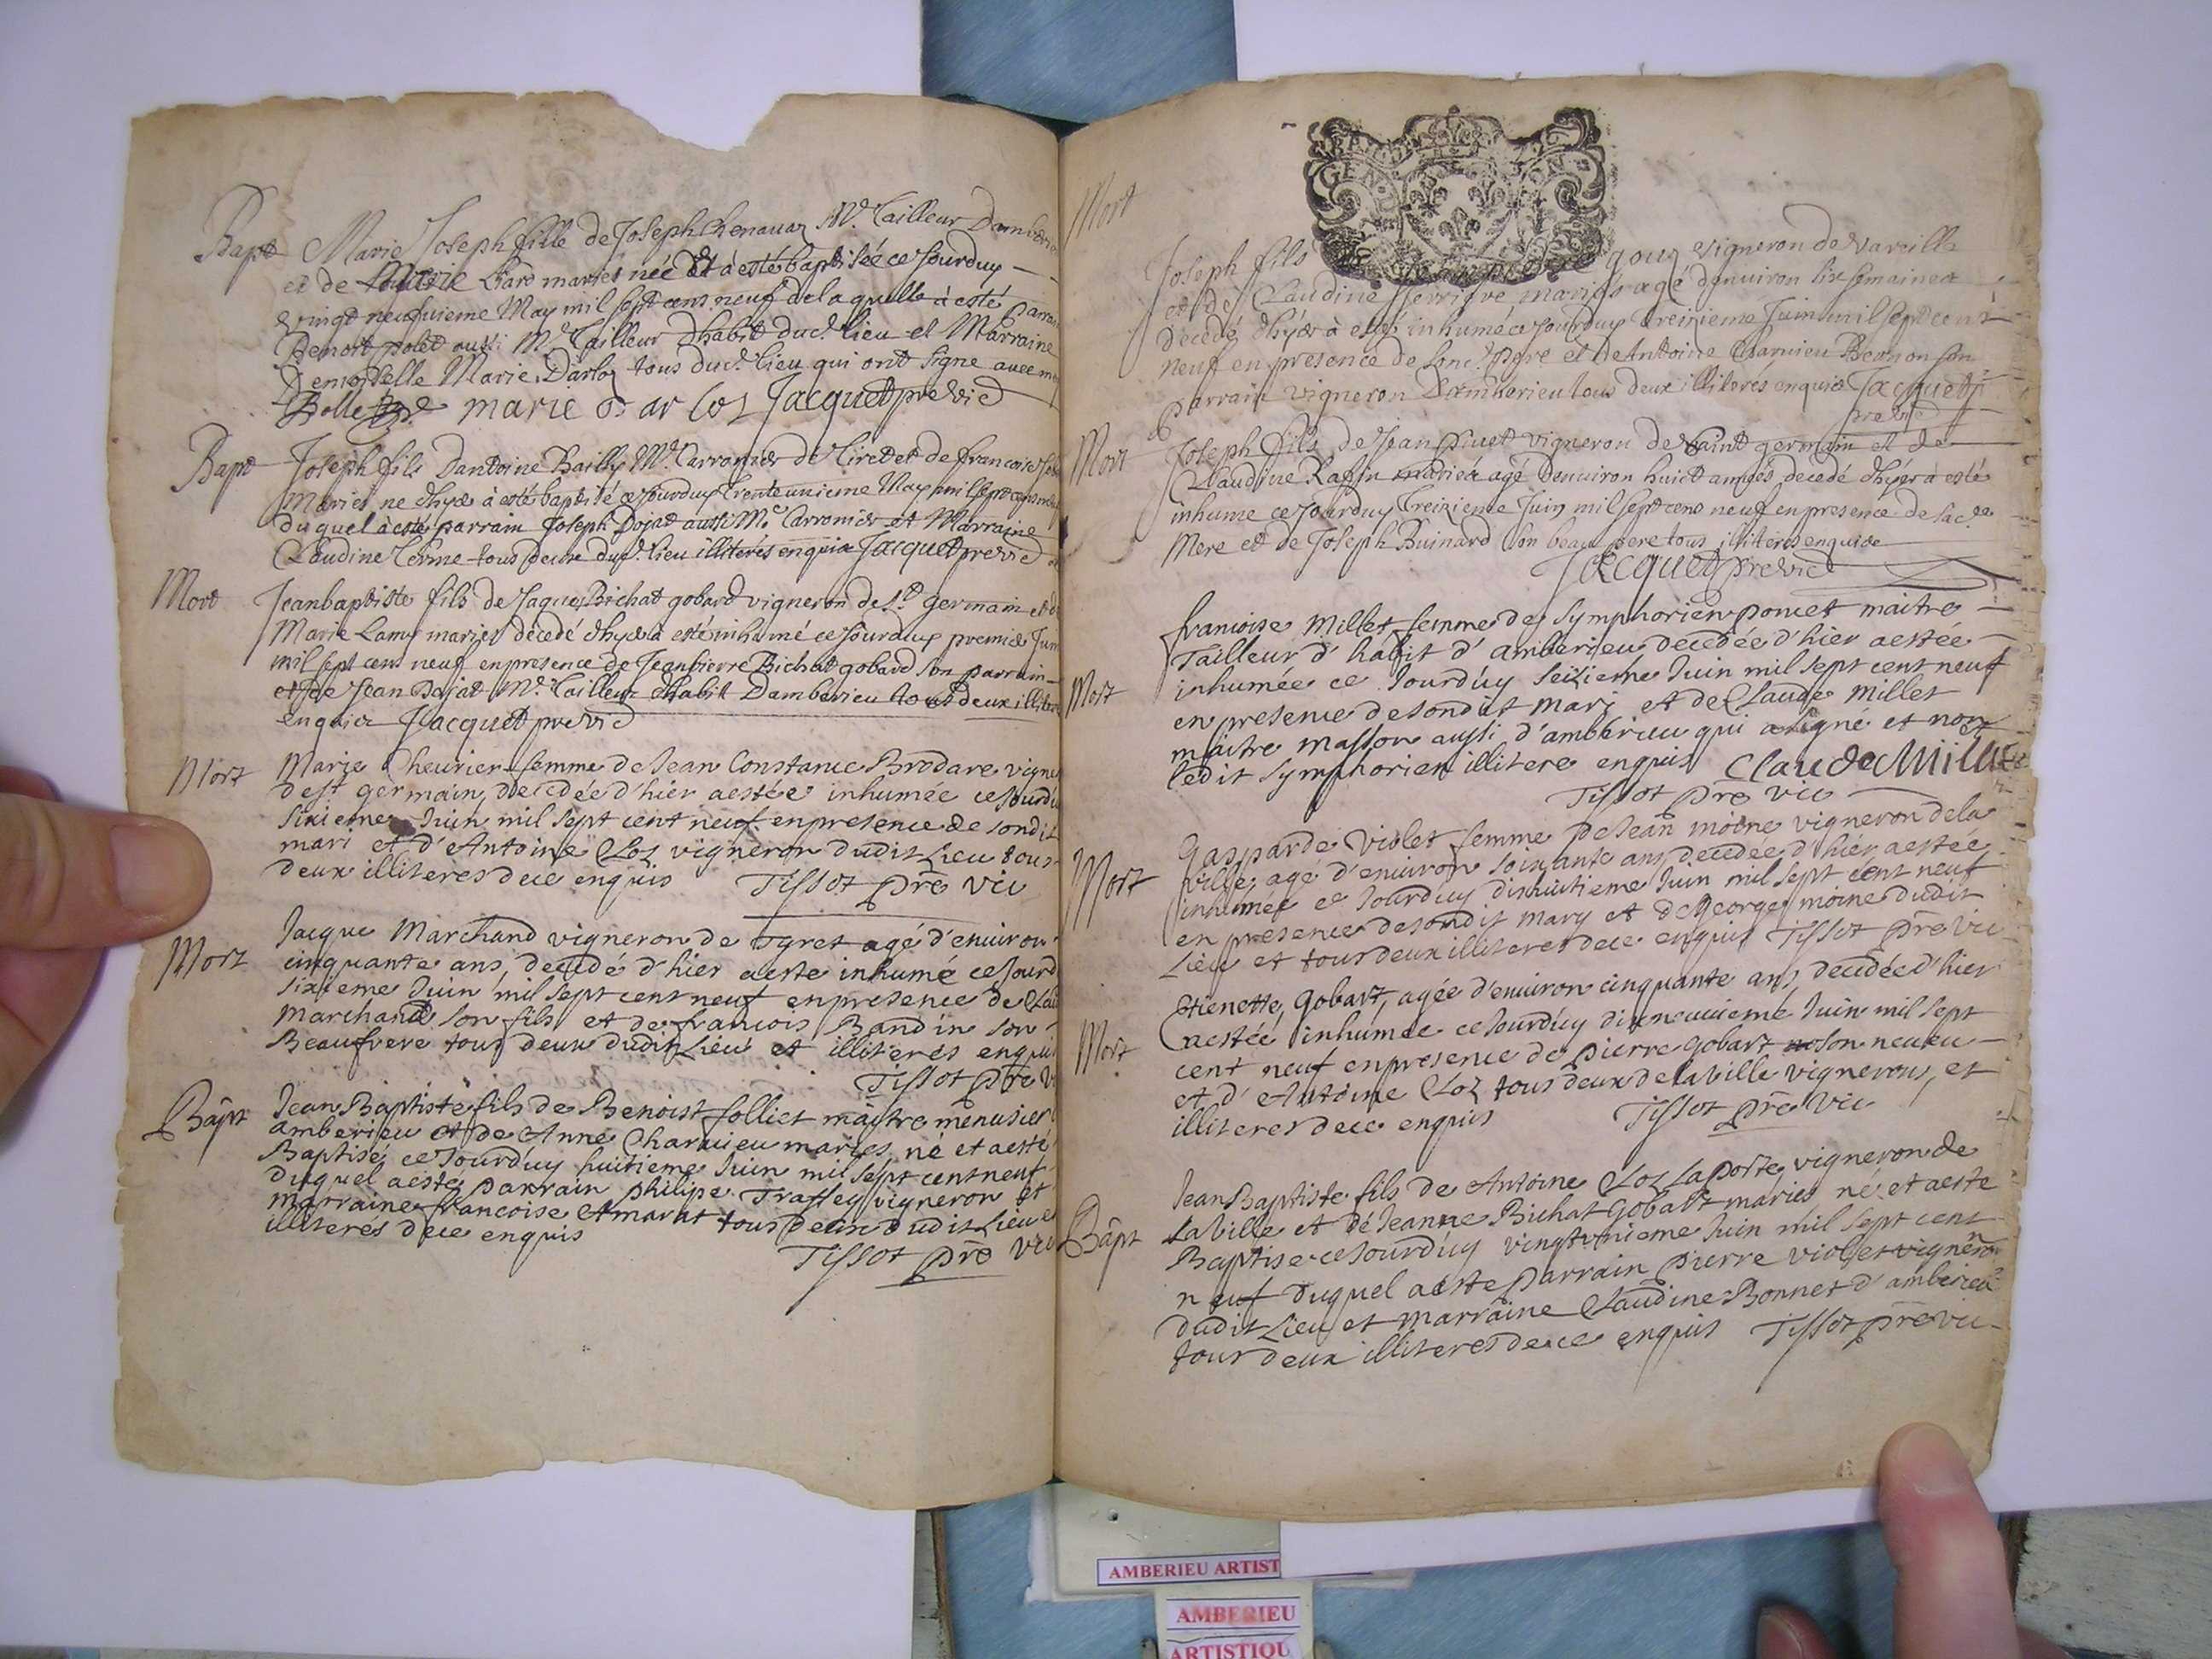 Bapt Marie Joseph fille de Joseph Chenavaz Me. Tailleur
et de Marie mariés née et à esté baptisée ce Jourduy
vingt neufvieme May mil sept cens neuf de laquelle à esté
Benoit polet aussi Me Tailleur dhabit dud. lieu et Marraine
Demoiselle Marie Darloz tous dud. lieu qui ont signe avec
marie Darloz Jacquet pre vic
Bapt Joseph fils Dantoine Bailly Me. Carronier de Tiret et de francoise
Mariés ne dhyer à esté baptisé ce Jourduy Trente unieme May mil sept cens
duquel à esté parrain Joseph Dojat aussi Me Carronier et Marraine
Claudine Terme tous deux dud. lieu illiterés enquis Jacquet pre vic
Mort Jeanbaptiste fils de Jaques Bichat gobard vigneron de St. germain
Marie Lamy mariés decedé dhyer à esté inhumé ce Jourduy premier
mil sept cens neuf en presence de Jeanpierre Bichat gobard son parrain
et de Jean Bajat Me. Tailleur dhabit Damberieu tous deux
enquis Jacquet pre vic
Mort Marie Cheurier femme de Jean Constance Brodare
de st germain, decedée d'hier aestée inhumée
sixieme Juin mil sept cent neuf en presence de sondit
mari et d'Antoine Cloz vigneron dudit Lieu tous
deux illiteres dece enquis Tissot pre vic
Mort Jacque Marchand vigneron de Tyret agé d'environ
cinquante ans, decedé d'hier aeste inhumé
sixieme Juin mil sept cent neuf en presence de
marchand son fils et de francois Bandin son
Beaufrere tous deux dudit Lieu et illiterés
Tissot pre
Bapt Jean Baptiste fils de Benoist folliet maitre menusier
amberieu et de Anne Charvieu mariés né et aesté
Baptisé ce Jourd'uy huitieme Juin mil sept cent neuf
duquel aeste parrain philipe Traffey vigneron et
marraine francoise Amarat tous deux dudit Lieu
illiterés dece enquis
Tissot pre vic
Mort
Joseph fils vigneron de Vareille
et de Claudine mariés agé denviron six semaines
decedé dhyer à esté inhumé ce Jourduy Treizieme Juin mil sept cent
neuf en presence de son pere et de Antoine Charvieu son
parrain vigneron Damberieu tous deux illiterés enquis Jacquet
pre vic
Mort Joseph fils de Jean vigneron de Saint germain et de
Claudine Rafin mariés agé Denviron huict années decedé dhyer à esté
inhume ce Jourduy Treizieme Juin mil sept cens neuf en presence de
Mere et de Joseph Buinard son beau pere tous illiteres enquis
Jacquet pre vic
francoise Millet femme de Symphorien poncet maitre
Tailleur d'habit d'amberieu decedée d'hier aestée
Mort inhumée ce Jourd'uy seizieme Juin mil sept cent neuf
en presence desondit mari et de Claude Millet
maitre masson aussi d'amberieu qui a signé et non
ledit Symphorien illitere enquis Claude Millet
Tissot pre vic
Mort Gasparde Violet femme de Jean moine vigneron dela
ville, agé d'environ soixante ans, decedée d'hier aestée
inhumée ce Jourduy dixhuitieme Juin mil sept cent neuf
en presence desondit mary et de George moine dudit
Lieu et tous deux illiteres dece enquis Tissot pre vic
Etienette Gobart, agée d'environ cinquante ans, decedée d'hier
Mort aestée inhumée ce Jourd'uy dixneuvieme Juin mil sept
cent neuf en presence de pierre Gobart son neveu
et d'Antoine Cloz tous deux delaville vignerons, et
illiteres dece enquis Tissot pre vic
Jean Baptiste fils de Antoine Cloz Laporte, vigneron de
Bapt Laville et de Jeanne Bichat Gobart mariés né et aeste
Baptise ce Jourd'uy vingtunieme Juin mil sept cent
neuf duquel aeste parrain pierre violet vigneron
dudit Lieu et marraine Claudine Bonnet d'amberieu
tous deux illiteres dece enquis Tissot pre vic
AMBERIEU ARTIST
AMBERIEU
ARTISTIQU